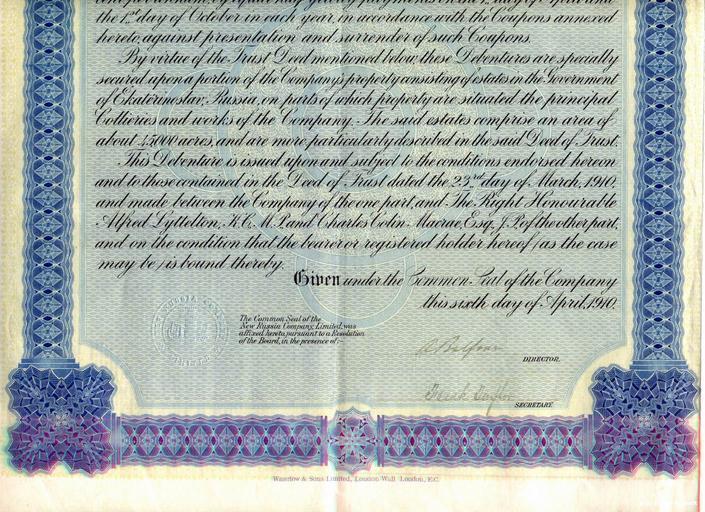 the 1st day of October in each year, in accordance with the Coupons annexed
hereto, against presentation and surrender of such Coupons.
By virtue of the Trust Deed mentioned below, these Debentures are specially
secured upon a portion of the Company's property consisting of estates in the Government
of Ekaterinoslav, Russia, on parts of which property are situated the principal
Collieries and works of the Company. The said estates comprise an area of
about 45000 acres, and are more particularly described in the said Deed of Trust.
This Debenture is issued upon and subject to the conditions endorsed hereon
and to those contained in the Deed of Trust dated the 23rd day of March, 1910,
and made between the Company of the one part, and The Right Honourable
Alfred Lyttelton, K.C., M.P. and Charles Colin Macrae, Esq., J.P. of the other part,
and on the condition that the bearer or registered holder hereof (as the case
may be) is bound thereby.
Given under the Common Seal of the Company
this sixth day of April, 1910.
The Common Seal of the
New Russia Company, Limited, was
affixed hereto, pursuant to a Resolution
of the Board, in the presence of:-
Balfour
DIRECTOR.
SECRETARY.
Waterlow & Sons Limited, London Wall, London, E.C.